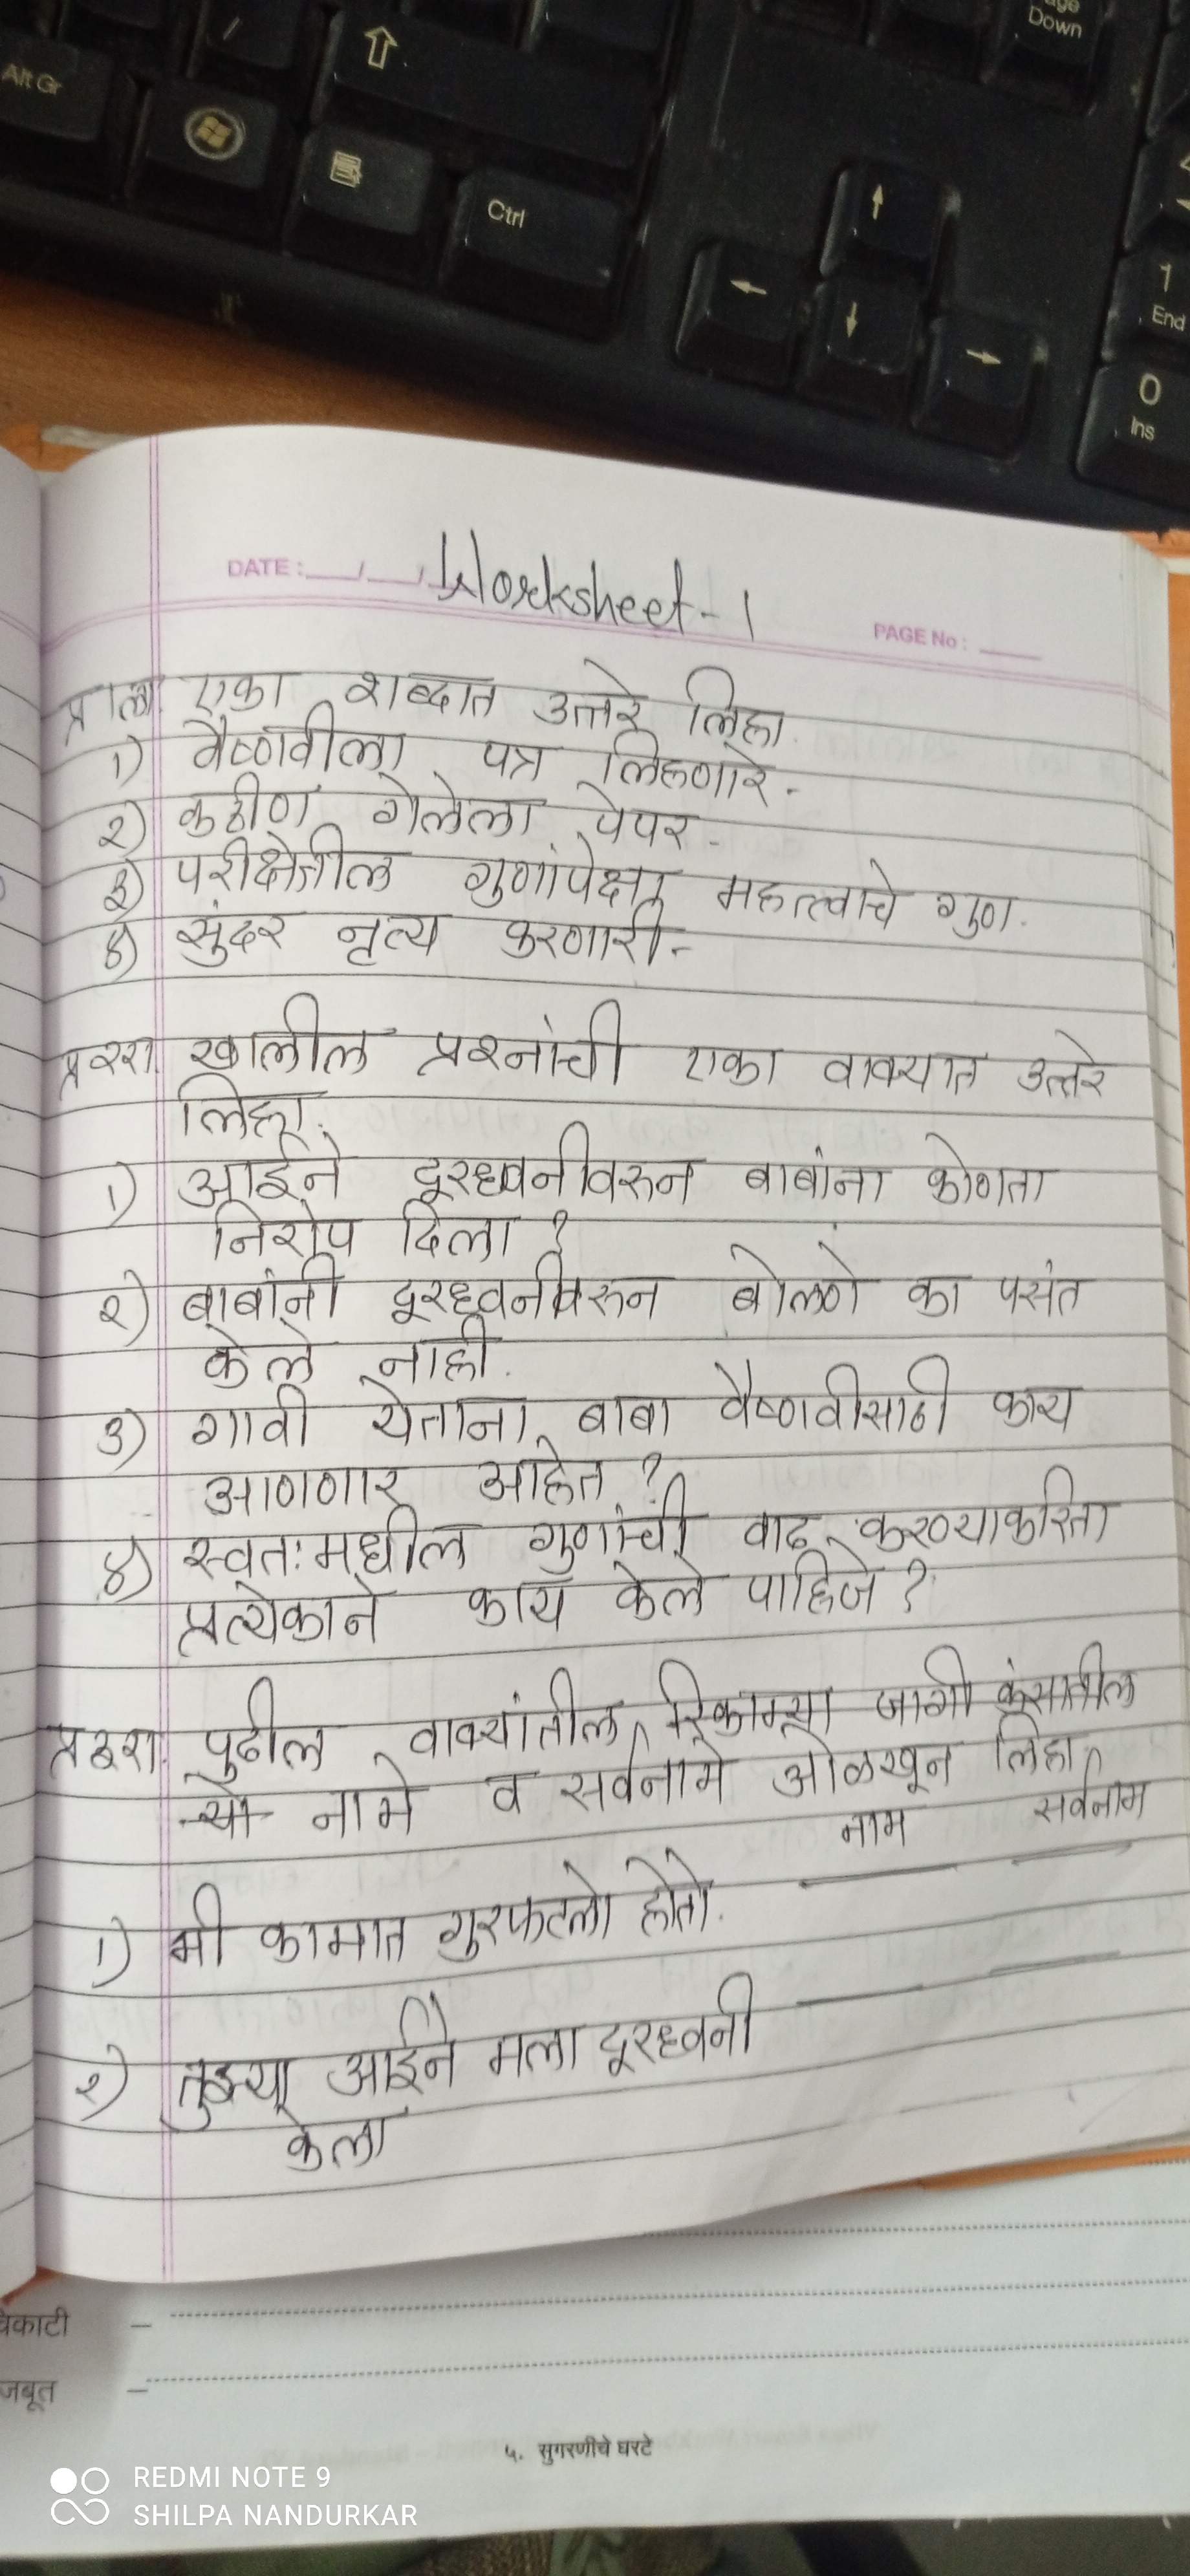 age
Down
Alt Gr
Ctrl
1
End
0
Ins
DATE :
Worksheet - 1
PAGE No :
एका शब्दात उत्तरे लिहा.
1) वैष्णवीला पत्र लिहणारे -
२) कठीण गेलेला पेपर -
३) परीक्षेतील गुणांपेक्षा महत्त्वाचे गुण.
४) सुंदर नृत्य करणारी -
प्र २रा खालील प्रश्नांची एका वाक्यात उत्तरे
लिहा.
1) आईने दूरध्वनीवरुन बाबांना कोणता
निरोप दिला ?
२) बाबांनी दूरध्वनीवरुन बोलणे का पसंत
केले नाही.
3) गावी येताना बाबा वैष्णवीसाठी काय
आणणार आहेत ?
४) स्वतःमधील गुणांची वाढ करण्याकरिता
प्रत्येकाने काय केले पाहिजे ?
प्र ३रा पुढील वाक्यांतील रिकाम्या जागी कंसातील
नामे व सर्वनामे ओळखून लिहा
नाम सर्वनाम
1) मी कामात गुरफटलो होतो.
२) तुझ्या आईने मला दूरध्वनी
केला
चिकाटी –
जबूत –
५. सुगरणीचे घरटे
REDMI NOTE 9
SHILPA NANDURKAR